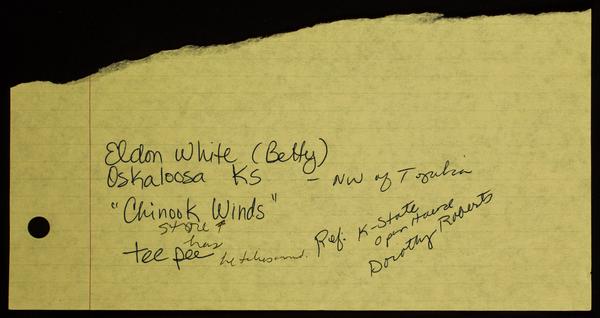 Eldon White (Betty)
Oskaloosa KS - NW of Topeka
"Chinook Winds"
store &
has
tee pee he takes around.
Ref. K-State
Open House
Dorothy Roberts